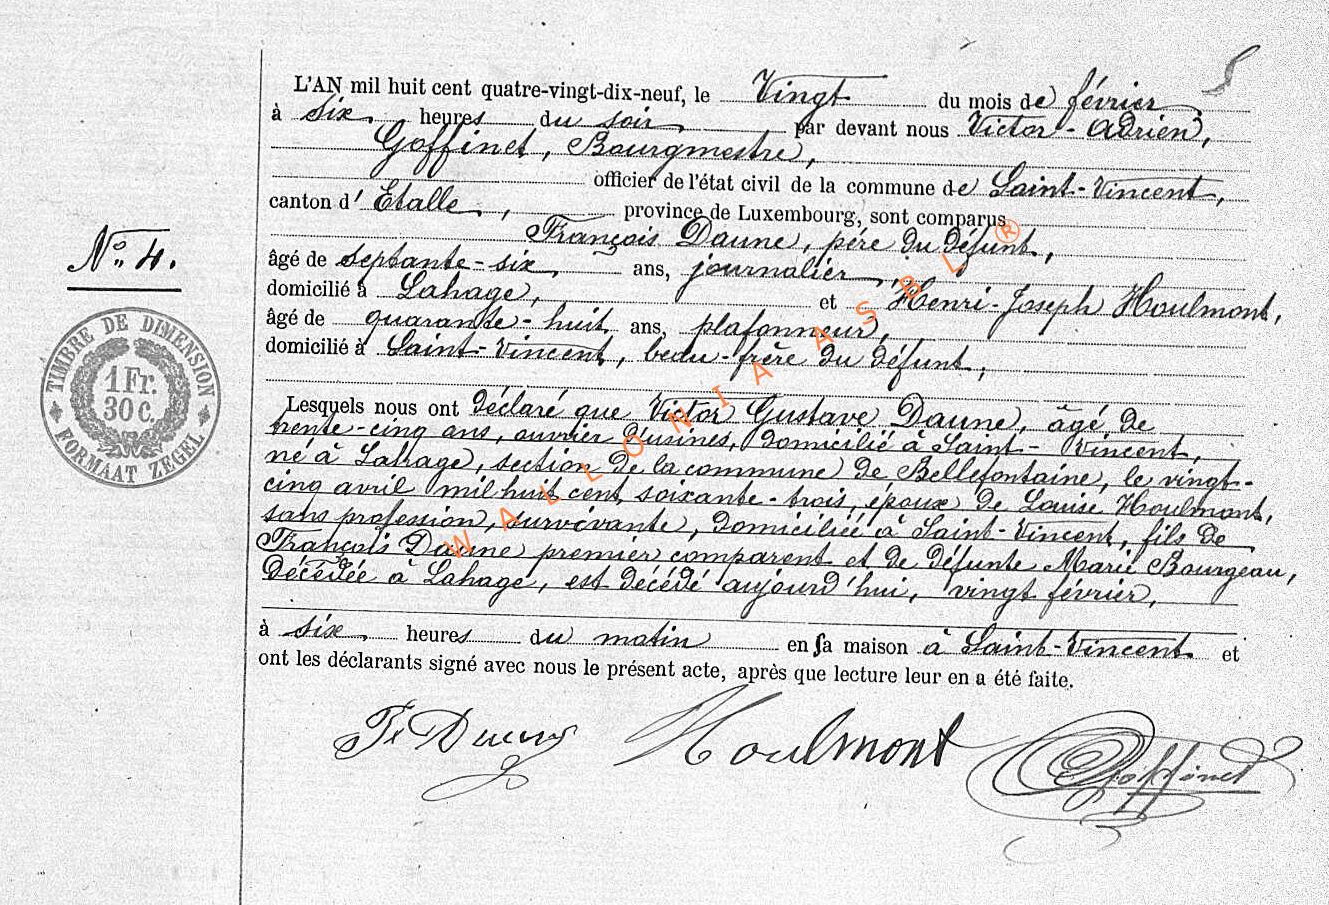 5
L'AN mil huit cent quatre-vingt-dix-neuf, le Vingt du mois de février
à six heures du soir par devant nous Victor-Adrien
Goffinet, Bourgmestre,
officier de l'état civil de la commune de Saint-Vincent,
canton d'Etalle, province de Luxembourg, sont comparus
François Daune, père du défunt,
âgé de septante-six ans, journalier,
domicilié à Lahage, et Henri-Joseph Houlmont,
âgé de quarante-huit ans, plafonneur,
domicilié à Saint-Vincent, beau-frère du défunt,
Lesquels nous ont déclaré que Victor Gustave Daune, âgé de
trente-cinq ans, ouvrier d'usines, domicilié à Saint-Vincent,
né à Lahage, section de la commune de Bellefontaine, le vingt-
cinq avril mil huit cent soixante-trois, époux de Louise Houlmont,
sans profession, survivante, domiciliée à Saint-Vincent, fils de
François Daune premier comparent et de défunte Marie Bourgeau,
décédée à Lahage, est décédé aujourd'hui, vingt février,
à six heures du matin en sa maison à Saint-Vincent et
ont les déclarants signé avec nous le présent acte, après que lecture leur en a été faite.
N° 4.
TIMBRE DE DIMENSION
1 Fr.
30 C.
FORMAAT ZEGEL
Houlmont
Goffinet
WALLONIA ASBL ®